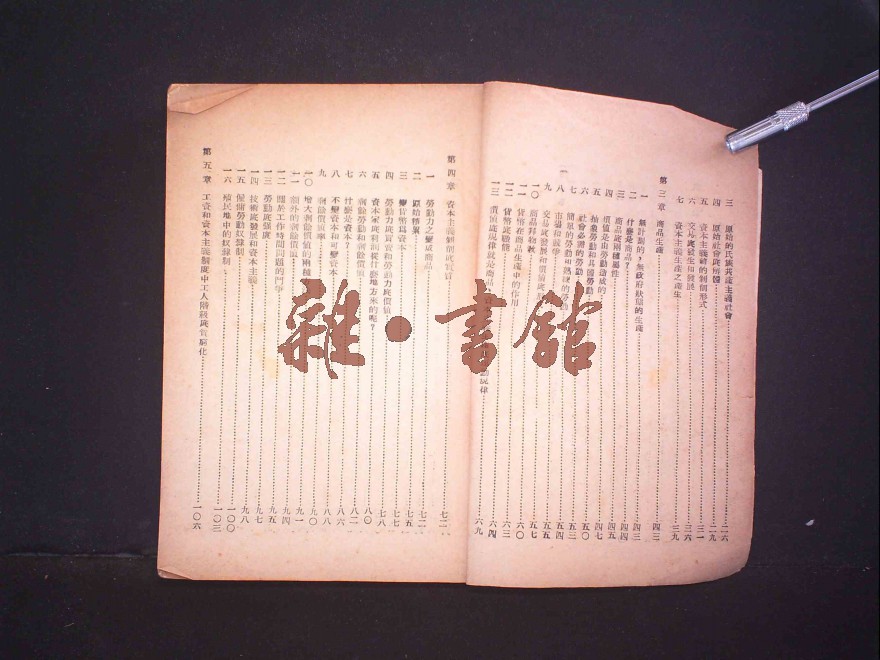 三 原始的氏族共產主義社會 二六
四 原始社會底解體 二九
五 資本主義前的剝削形式 三一
六 交易底發生和發展 三六
七 資本主義生產之產生 三九
第三章 商品生產 四三
一 無計劃的，無政府狀態的生產 四三
二 什麼是商品？ 四四
三 商品底兩種屬性 四四
四 價值是由勞動造成的 四五
五 抽象勞動和具體勞動 四七
六 社會必需的勞動 五〇
七 簡單的勞動和熟練的勞動 五三
八 市場和競爭 五四
九 交易底發展和價值底 五五
一〇 商品拜物教 五七
一一 貨幣在商品生產中的作用 六〇
一二 貨幣底職能 六三
一三 價值底規律就是商品 規律 六九
第四章 資本主義制剝底 七二
一 勞動力之變成商品 七二
二 原始積累
三 變貨幣為資本 七五
四 勞動力底買賣和勞動力底價值 七七
五 資本家底利潤從什麼地方來的呢？ 七八
六 剩餘勞動和剩餘價值 八〇
七 什麼是資本？
八 不變資本和可變資本 八六
九 剩餘價值率 八八
一〇 增大剩餘價值的兩種 九〇
一一 額外的剩餘價值 九一
一二 關於工作時間問題的鬥爭 九四
一三 勞動底強度 九五
一四 技術底發展和資本主義 九七
一五 僱傭勞動奴隸制 九八
一六 殖民地中的奴隸制 一〇〇
一〇三
第五章 工資和資本主義制度中工人階級底貧窮化 一〇六
雜·書館